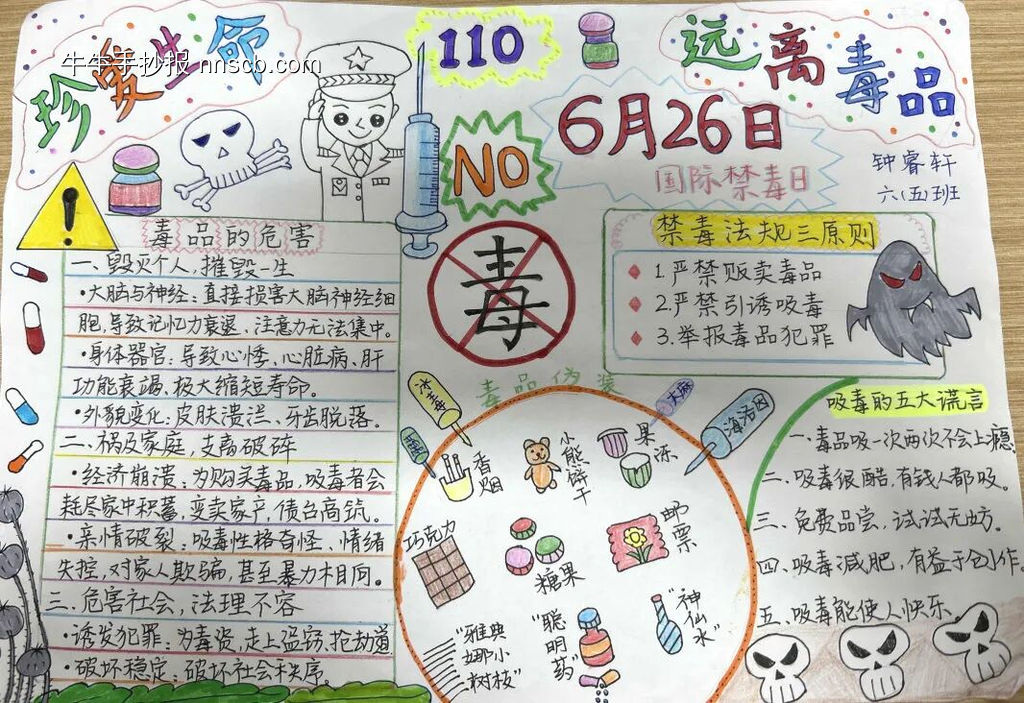 珍爱生命
牛牛手抄报 nnscb.com
110
远离毒品
NO
6月26日
国际禁毒日
钟睿轩
六(五)班
毒品的危害
一、毁灭个人,摧毁一生
•大脑与神经:直接损害大脑神经细
胞,导致记忆力衰退、注意力无法集中。
•身体器官:导致心悸、心脏病、肝
功能衰竭、极大缩短寿命。
•外貌变化:皮肤溃烂、牙齿脱落。
二、祸及家庭,支离破碎
•经济崩溃:为购买毒品,吸毒者会
耗尽家中积蓄,变卖家产,债台高筑。
•亲情破裂:吸毒性格奇怪、情绪
失控,对家人欺骗,甚至暴力相向。
三、危害社会,法理不容
•诱发犯罪:为毒资,走上盗窃、抢劫道
•破坏稳定:破坏社会秩序。
毒
禁毒法规三原则
1.严禁贩卖毒品
2.严禁引诱吸毒
3.举报毒品犯罪
毒品伪装
冰毒
大麻
海洛因
香烟
小熊饼干
果冻
巧克力
糖果
邮票
"雅典
娜小
树枝"
"聪明药"
"神仙水"
吸毒的五大谎言
一.毒品吸一次两次不会上瘾
二、吸毒很酷,有钱人都吸。
三、免费品尝,试试无妨。
四、吸毒减肥,有益于创作。
五、吸毒能使人快乐